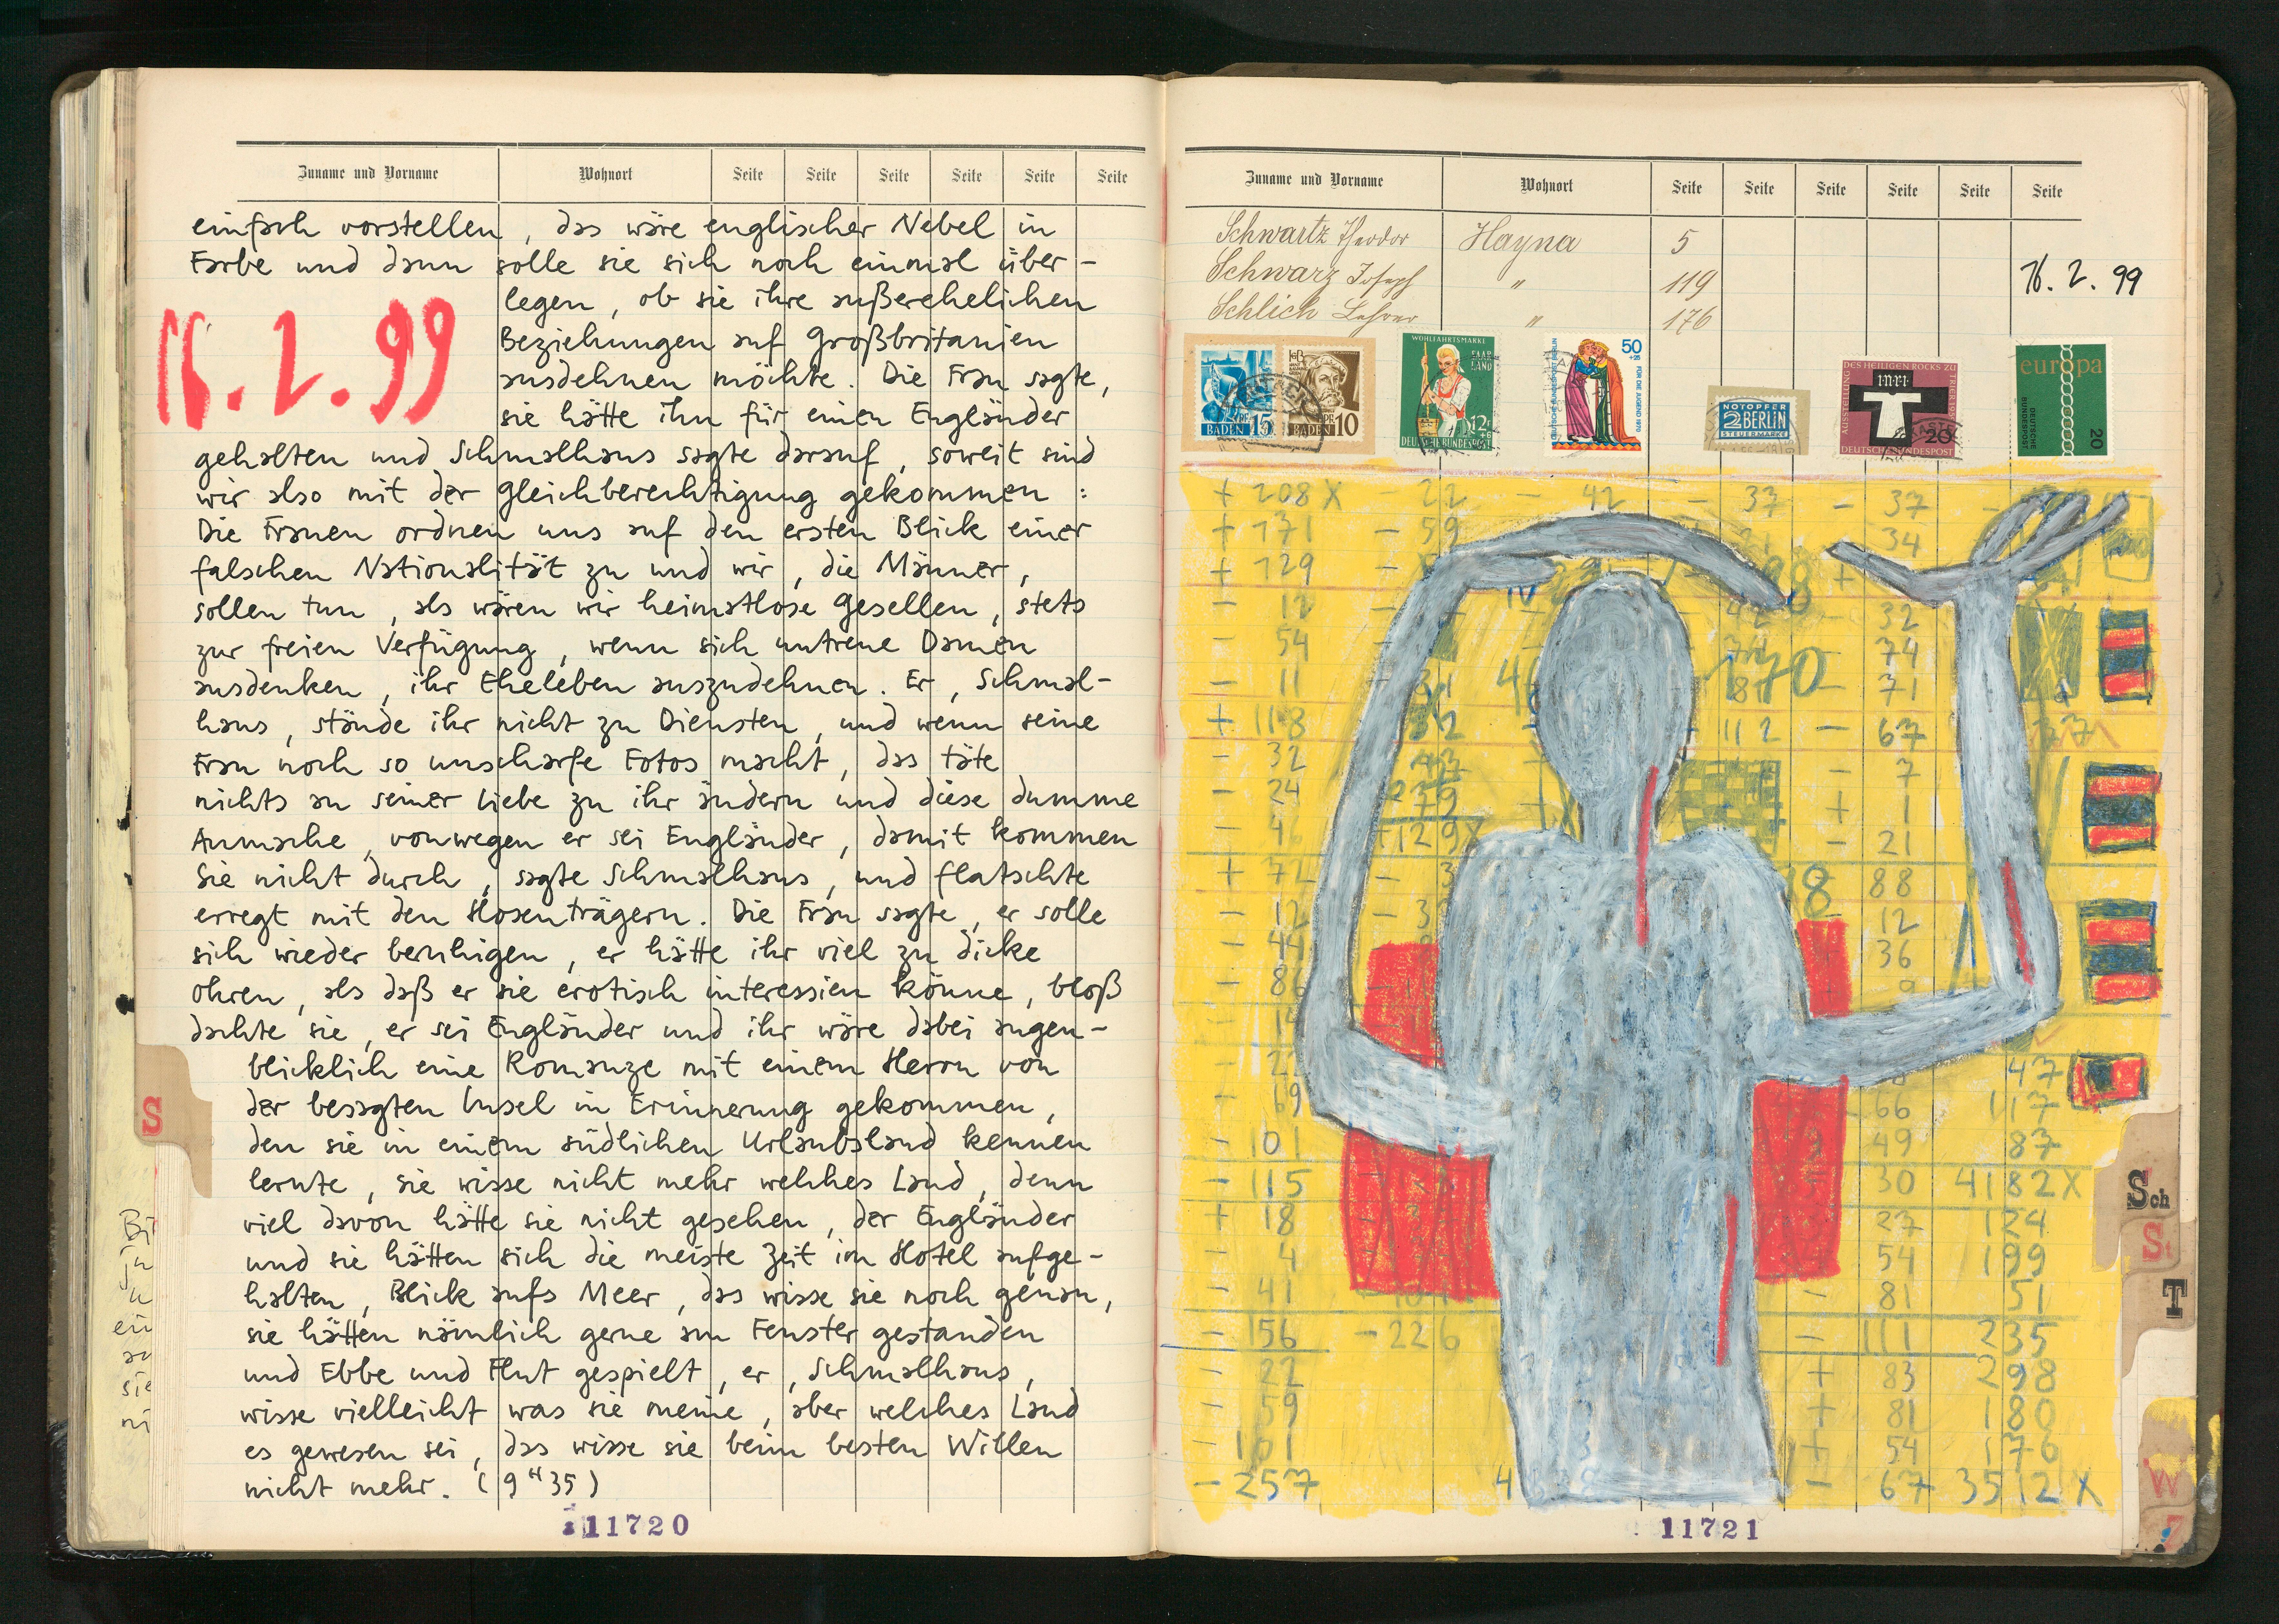 Zuname und Vorname Wohnort Seite Seite Seite Seite Seite Seite
einfach vorstellen, das wäre englischer Nebel in
Farbe und dann solle sie sich noch einmal über-
legen, ob sie ihre außerehelichen
16.2.99
Beziehungen auf Großbritanien
ausdehnen möchte. Die Frau sagte,
sie hätte ihn für einen Engländer
gehalten und Schmalhans sagte darauf, soweit sind
wir also mit der Gleichberechtigung gekommen :
Die Frauen ordnen uns auf den ersten Blick einer
falschen Nationalität zu und wir, die Männer,
sollen tun, als wären wir heimatlose Gesellen, stets
zur freien Verfügung, wenn sich untreue Damen
ausdenken, ihr Eheleben auszudehnen. Er, Schmal-
hans, stände ihr nicht zu Diensten, und wenn seine
Frau noch so unscharfe Fotos macht, das täte
nichts an seiner Liebe zu ihr ändern und diese dumme
Anmache, vonwegen er sei Engländer, damit kommen
Sie nicht durch, sagte Schmalhans, und flatschte
erregt mit den Hosenträgern. Die Frau sagte, er solle
sich wieder beruhigen, er hätte ihr viel zu dicke
Ohren, als daß er sie erotisch interessien könne, bloß
dachte sie, er sei Engländer und ihr wäre dabei augen-
blicklich eine Romanze mit einem Herrn von
der besagten Insel in Erinnerung gekommen,
den sie in einem südlichen Urlaubsland kennen
lernte, sie wisse nicht mehr welches Land, denn
viel davon hätte sie nicht gesehen, der Engländer
und sie hätten sich die meiste Zeit im Hotel aufge-
halten, Blick aufs Meer, das wisse sie noch genau,
sie hätten nämlich gerne am Fenster gestanden
und Ebbe und Flut gespielt, er, Schmalhans,
wisse vielleicht was sie meine, aber welches Land
es gewesen sei, das wisse sie beim besten Willen
nicht mehr. (9 H 35)
11720
S
Zuname und Vorname Wohnort Seite Seite Seite Seite Seite Seite
Schwartz Theodor Hayna 5
Schwarz Josef " 119
Schlich Lehrer " 176
16.2.99
BADEN 15
BADEN 10
WOHLFAHRTSMARKE
SAAR LAND
12+6
DEUTSCHE BUNDESPOST
50
FÜR DIE JUGEND 1970
NOTOPFER
2 BERLIN
STEUERMARKE
AUSSTELLUNG DES HEILIGEN ROCKS ZU TRIER 1959
INRI
20
DEUTSCHE BUNDESPOST
europa
DEUTSCHE BUNDESPOST
20
+ 208 X - 22 - 42 - 37 - 37
+ 171 - 59 34
+ 129
- 12 32
- 54 74
- 11 71
+ 118 112 - 67
- 32 - 7
- 24 + 1
- 46 + 129 X - 21
+ 72 88
- 12 12
- 44 36
- 86
47
- 69 66 117
- 101 49 87
- 115 30 4182 X
+ 18 27 124
- 4 54 199
- 41 - 81 51
- 156 - 226 - 111 235
- 22 + 83 298
- 59 + 81 180
- 101 + 54 176
- 257 - 67 3512 X
11721
Sch
St
T
W